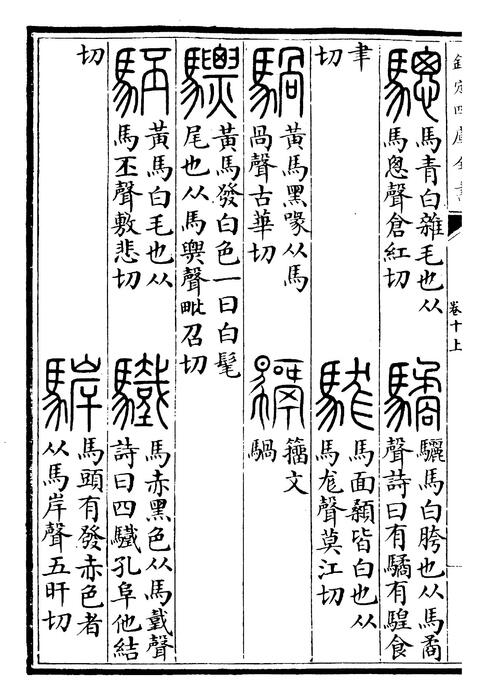 欽定四庫全書
卷十上
驄
馬青白雜毛也从
馬悤聲倉紅切
驈
驪馬白胯也从馬矞
聲詩曰有驈有騜食
聿
切
駹
馬面顙皆白也从
馬尨聲莫江切
騧
黃馬黑喙从馬
咼聲古華切
籀文
騧
驃
黃馬發白色一曰白髦
尾也从馬㶾聲毗召切
駓
黃馬白毛也从
馬丕聲敷悲切
驖
馬赤黑色从馬𢧜聲
詩曰四驖孔阜他結
切
䮗
馬頭有發赤色者
从馬岸聲五旰切